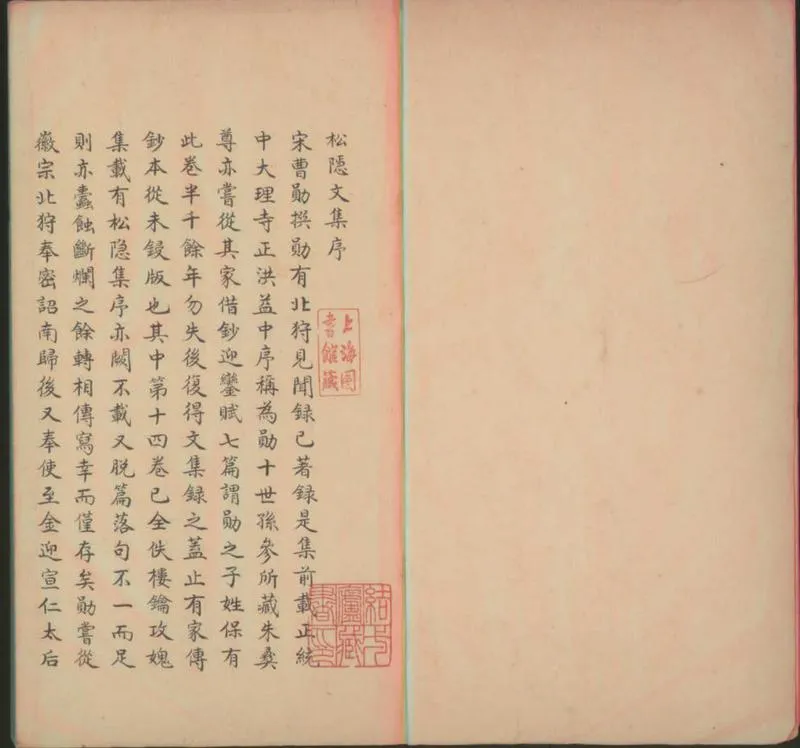 松隱文集序
宋曹勛撰勛有北狩見聞録已著録是集前載正統
中大理寺正洪益中序稱為勛十世孫參所藏朱彝
尊亦嘗從其家借鈔迎鑾賦七篇謂勛之子姓保有
此卷半千餘年勿失後復得文集録之蓋止有家傳
鈔本從未鋟版也其中第十四卷已全佚樓鑰攻媿
集載有松隐集序亦闕不載又脱篇落句不一而足
則亦蠹蝕斷爛之餘轉相傳寫幸而僅存矣勛嘗從
徽宗北狩奉密詔南歸後又奉使至金迎宣仁太后
上海图
書館藏
結弌
廬藏
書印